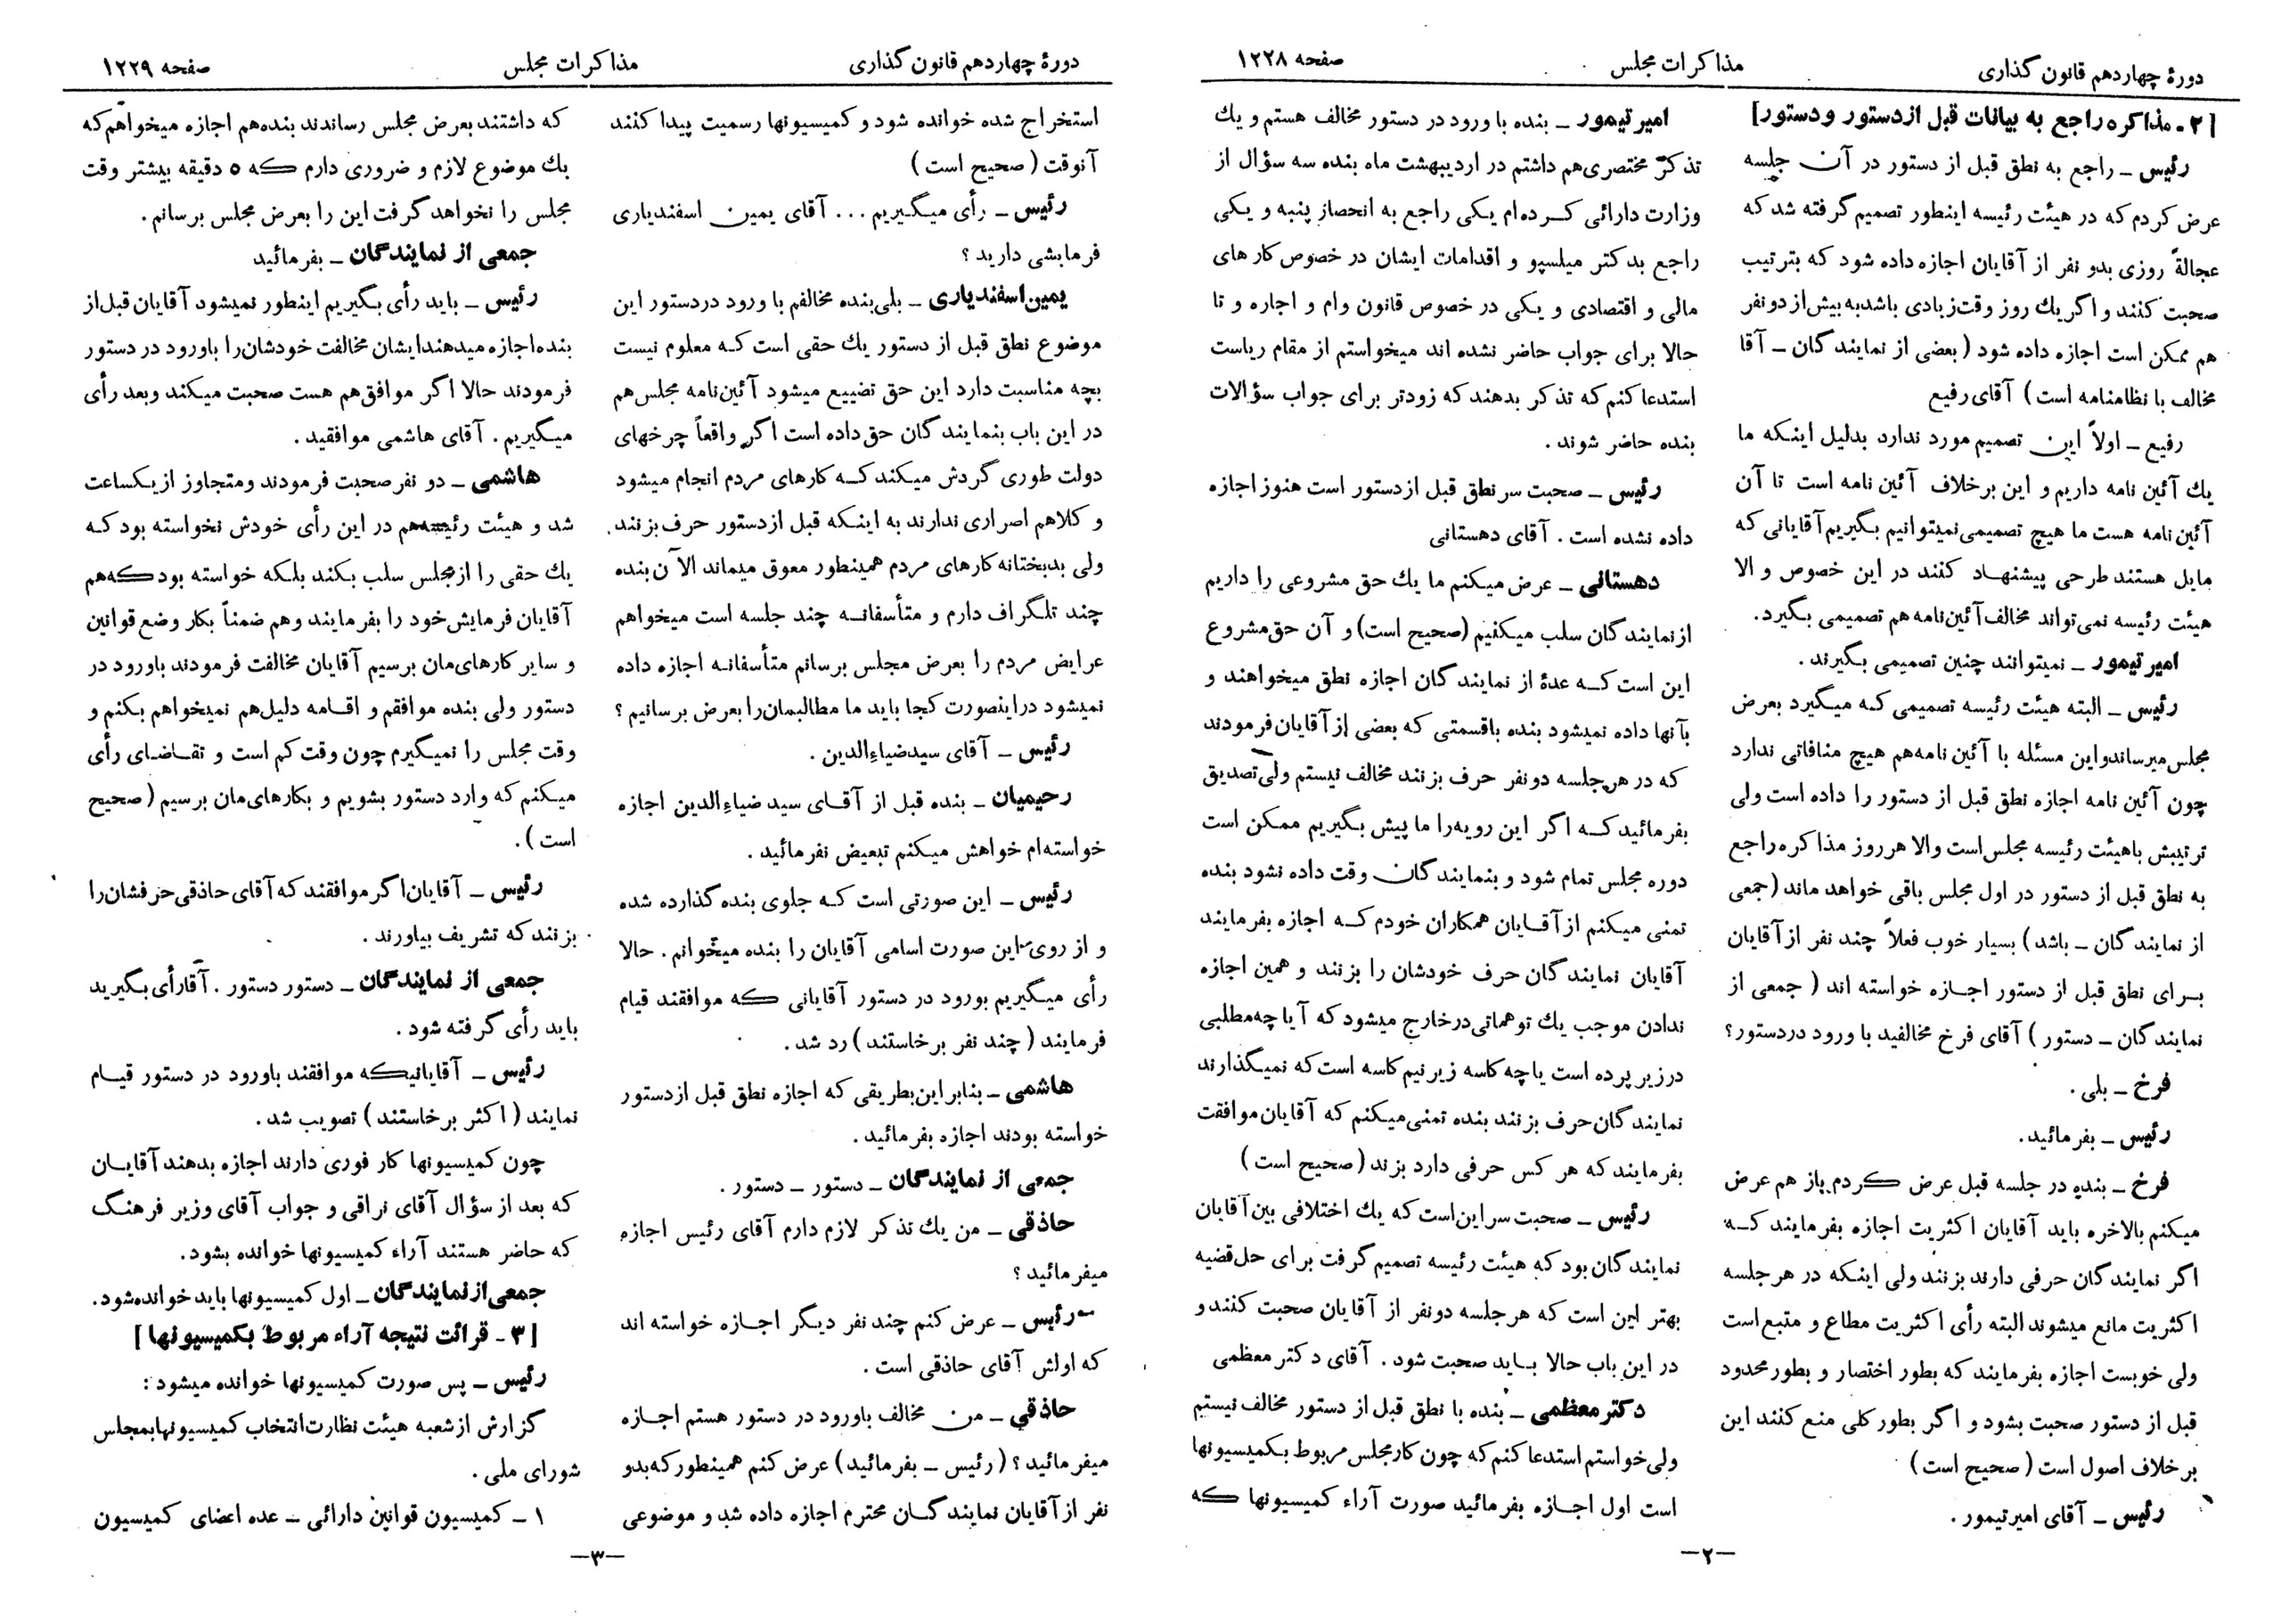 دورهٔ چهاردهم قانون گذاری
مذاکرات مجلس
صفحه ۱۲۲۸
[۲- مذاکره راجع به بیانات قبل از دستور و دستور]
رئیس ــ راجع به نطق قبل از دستور در آن جلسه
عرض کردم که در هیئت رئیسه اینطور تصمیم گرفته شد که
عجالةً روزی بدو نفر از آقایان اجازه داده شود که بترتیب
صحبت کنند و اگر یك روز وقت زیادی باشد به بیش از دو نفر
هم ممکن است اجازه داده شود ( بعضی از نمایندگان ــ آقا
مخالف با نظامنامه است ) آقای رفیع
رفیع ــ اولاً این تصمیم مورد ندارد بدلیل اینکه ما
یك آئین نامه داریم و این برخلاف آئین نامه است تا آن
آئین نامه هست ما هیچ تصمیمی نمیتوانیم بگیریم آقایانی که
مایل هستند طرحی پیشنهاد کنند در این خصوص و الا
هیئت رئیسه نمی‌تواند مخالف آئین‌نامه هم تصمیمی بگیرد.
امیر تیمور ــ نمیتوانند چنین تصمیمی بگیرند .
رئیس ــ البته هیئت رئیسه تصمیمی که میگیرد بعرض
مجلس میرساند و این مسئله با آئین نامه هم هیچ منافاتی ندارد
چون آئین نامه اجازه نطق قبل از دستور را داده است ولی
ترتیبش با هیئت رئیسه مجلس است والا هر روز مذاکره راجع
به نطق قبل از دستور در اول مجلس باقی خواهد ماند ( جمعی
از نمایندگان ــ باشد ) بسیار خوب فعلاً چند نفر از آقایان
برای نطق قبل از دستور اجازه خواسته اند ( جمعی از
نمایندگان ــ دستور ) آقای فرخ مخالفید با ورود در دستور؟
فرخ ــ بلی .
رئیس ــ بفرمائید.
فرخ ــ بنده در جلسه قبل عرض کردم باز هم عرض
میکنم بالاخره باید آقایان اکثریت اجازه بفرمایند که
اگر نمایندگان حرفی دارند بزنند ولی اینکه در هر جلسه
اکثریت مانع میشوند البته رأی اکثریت مطاع و متبع است
ولی خوبست اجازه بفرمایند که بطور اختصار و بطور محدود
قبل از دستور صحبت بشود و اگر بطور کلی منع کنند این
برخلاف اصول است ( صحیح است )
رئیس ــ آقای امیر تیمور .
امیر تیمور ــ بنده با ورود در دستور مخالف هستم و یك
تذکر مختصری هم داشتم در اردیبهشت ماه بنده سه سؤال از
وزارت دارائی کرده‌ام یکی راجع به انحصار پنبه و یکی
راجع بدکتر میلسپو و اقدامات ایشان در خصوص کار های
مالی و اقتصادی و یکی در خصوص قانون وام و اجاره و تا
حالا برای جواب حاضر نشده اند میخواستم از مقام ریاست
استدعا کنم که تذکر بدهند که زودتر برای جواب سؤالات
بنده حاضر شوند .
رئیس ــ صحبت سر نطق قبل از دستور است هنوز اجازه
داده نشده است . آقای دهستانی
دهستانی ــ عرض میکنم ما یك حق مشروعی را داریم
از نمایندگان سلب میکنیم (صحیح است) و آن حق مشروع
این است که عدهٔ از نمایندگان اجازه نطق میخواهند و
بآنها داده نمیشود بنده باقسمتی که بعضی از آقایان فرمودند
که در هر جلسه دو نفر حرف بزنند مخالف نیستم ولی تصدیق
بفرمائید که اگر این رویه را ما پیش بگیریم ممکن است
دوره مجلس تمام شود و بنمایندگان وقت داده نشود بنده
تمنی میکنم از آقایان همکاران خودم که اجازه بفرمایند
آقایان نمایندگان حرف خودشان را بزنند و همین اجازه
ندادن موجب یك توهماتی در خارج میشود که آیا چه مطلبی
در زیر پرده است یا چه کاسه زیر نیم کاسه است که نمیگذارند
نمایندگان حرف بزنند بنده تمنی میکنم که آقایان موافقت
بفرمایند که هر کس حرفی دارد بزند ( صحیح است )
رئیس ــ صحبت سر این است که یك اختلافی بین آقایان
نمایندگان بود که هیئت رئیسه تصمیم گرفت برای حل قضیه
بهتر این است که هر جلسه دو نفر از آقایان صحبت کنند و
در این باب حالا باید صحبت شود . آقای دکتر معظمی
دکتر معظمی ــ بنده با نطق قبل از دستور مخالف نیستم
ولی خواستم استدعا کنم که چون کار مجلس مربوط بکمیسیونها
است اول اجازه بفرمائید صورت آراء کمیسیونها که
ــ۲ــ
دورهٔ چهاردهم قانون گذاری
مذاکرات مجلس
صفحه ۱۲۲۹
استخراج شده خوانده شود و کمیسیونها رسمیت پیدا کنند
آنوقت ( صحیح است )
رئیس ــ رأی میگیریم ... آقای یمین اسفندیاری
فرمایشی دارید ؟
یمین اسفندیاری ــ بلی بنده مخالفم با ورود در دستور این
موضوع نطق قبل از دستور یك حقی است که معلوم نیست
بچه مناسبت دارد این حق تضییع میشود آئین‌نامه مجلس هم
در این باب بنمایندگان حق داده است اگر واقعاً چرخهای
دولت طوری گردش میکند که کارهای مردم انجام میشود
و کلاهم اصراری ندارند به اینکه قبل از دستور حرف بزنند.
ولی بدبختانه کارهای مردم همینطور معوق میماند الآن بنده
چند تلگراف دارم و متأسفانه چند جلسه است میخواهم
عرایض مردم را بعرض مجلس برسانم متأسفانه اجازه داده
نمیشود در اینصورت کجا باید ما مطالبمان را بعرض برسانیم ؟
رئیس ــ آقای سید ضیاءالدین .
رحیمیان ــ بنده قبل از آقای سید ضیاءالدین اجازه
خواسته‌ام خواهش میکنم تبعیض نفرمائید .
رئیس ــ این صورتی است که جلوی بنده گذارده شده
و از روی این صورت اسامی آقایان را بنده میخوانم . حالا
رأی میگیریم بورود در دستور آقایانی که موافقند قیام
فرمایند ( چند نفر برخاستند ) رد شد .
هاشمی ــ بنابراین بطریقی که اجازه نطق قبل از دستور
خواسته بودند اجازه بفرمائید .
جمعی از نمایندگان ــ دستور ــ دستور .
حاذقی ــ من یك تذکر لازم دارم آقای رئیس اجازه
میفرمائید ؟
رئیس ــ عرض کنم چند نفر دیگر اجازه خواسته اند
که اولش آقای حاذقی است .
حاذقی ــ من مخالف باورود در دستور هستم اجازه
میفرمائید ؟ ( رئیس ــ بفرمائید ) عرض کنم همینطور که بدو
نفر از آقایان نمایندگان محترم اجازه داده شد و موضوعی
که داشتند بعرض مجلس رساندند بنده هم اجازه میخواهم که
یك موضوع لازم و ضروری دارم که ۵ دقیقه بیشتر وقت
مجلس را نخواهد گرفت این را بعرض مجلس برسانم .
جمعی از نمایندگان ــ بفرمائید
رئیس ــ باید رأی بگیریم اینطور نمیشود آقایان قبل از
بنده اجازه میدهند ایشان مخالفت خودشان را باورود در دستور
فرمودند حالا اگر موافق هم هست صحبت میکند و بعد رأی
میگیریم . آقای هاشمی موافقید .
هاشمی ــ دو نفر صحبت فرمودند و متجاوز از یکساعت
شد و هیئت رئیسه هم در این رأی خودش نخواسته بود که
یك حقی را از مجلس سلب بکند بلکه خواسته بود که هم
آقایان فرمایش خود را بفرمایند و هم ضمناً بکار وضع قوانین
و سایر کارهای‌مان برسیم آقایان مخالفت فرمودند باورود در
دستور ولی بنده موافقم و اقامه دلیل هم نمیخواهم بکنم و
وقت مجلس را نمیگیرم چون وقت کم است و تقاضای رأی
میکنم که وارد دستور بشویم و بکارهای‌مان برسیم ( صحیح
است ) .
رئیس ــ آقایان اگر موافقند که آقای حاذقی حرفشان را
بزنند که تشریف بیاورند .
جمعی از نمایندگان ــ دستور دستور . آقا رأی بگیرید
باید رأی گرفته شود .
رئیس ــ آقایانیکه موافقند باورود در دستور قیام
نمایند ( اکثر برخاستند ) تصویب شد .
چون کمیسیونها کار فوری دارند اجازه بدهند آقایان
که بعد از سؤال آقای نراقی و جواب آقای وزیر فرهنگ
که حاضر هستند آراء کمیسیونها خوانده بشود .
جمعی از نمایندگان ــ اول کمیسیونها باید خوانده شود .
[ ۳ - قرائت نتیجه آراء مربوط بکمیسیونها ]
رئیس ــ پس صورت کمیسیونها خوانده میشود :
گزارش از شعبه هیئت نظارت انتخاب کمیسیونها بمجلس
شورای ملی .
۱ ــ کمیسیون قوانین دارائی ــ عده اعضای کمیسیون
ــ۳ــ